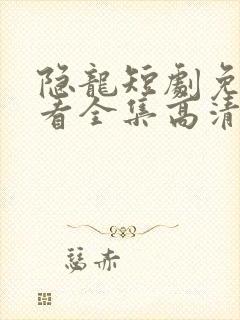 隐龍短劇免
看全集高清
慈赤